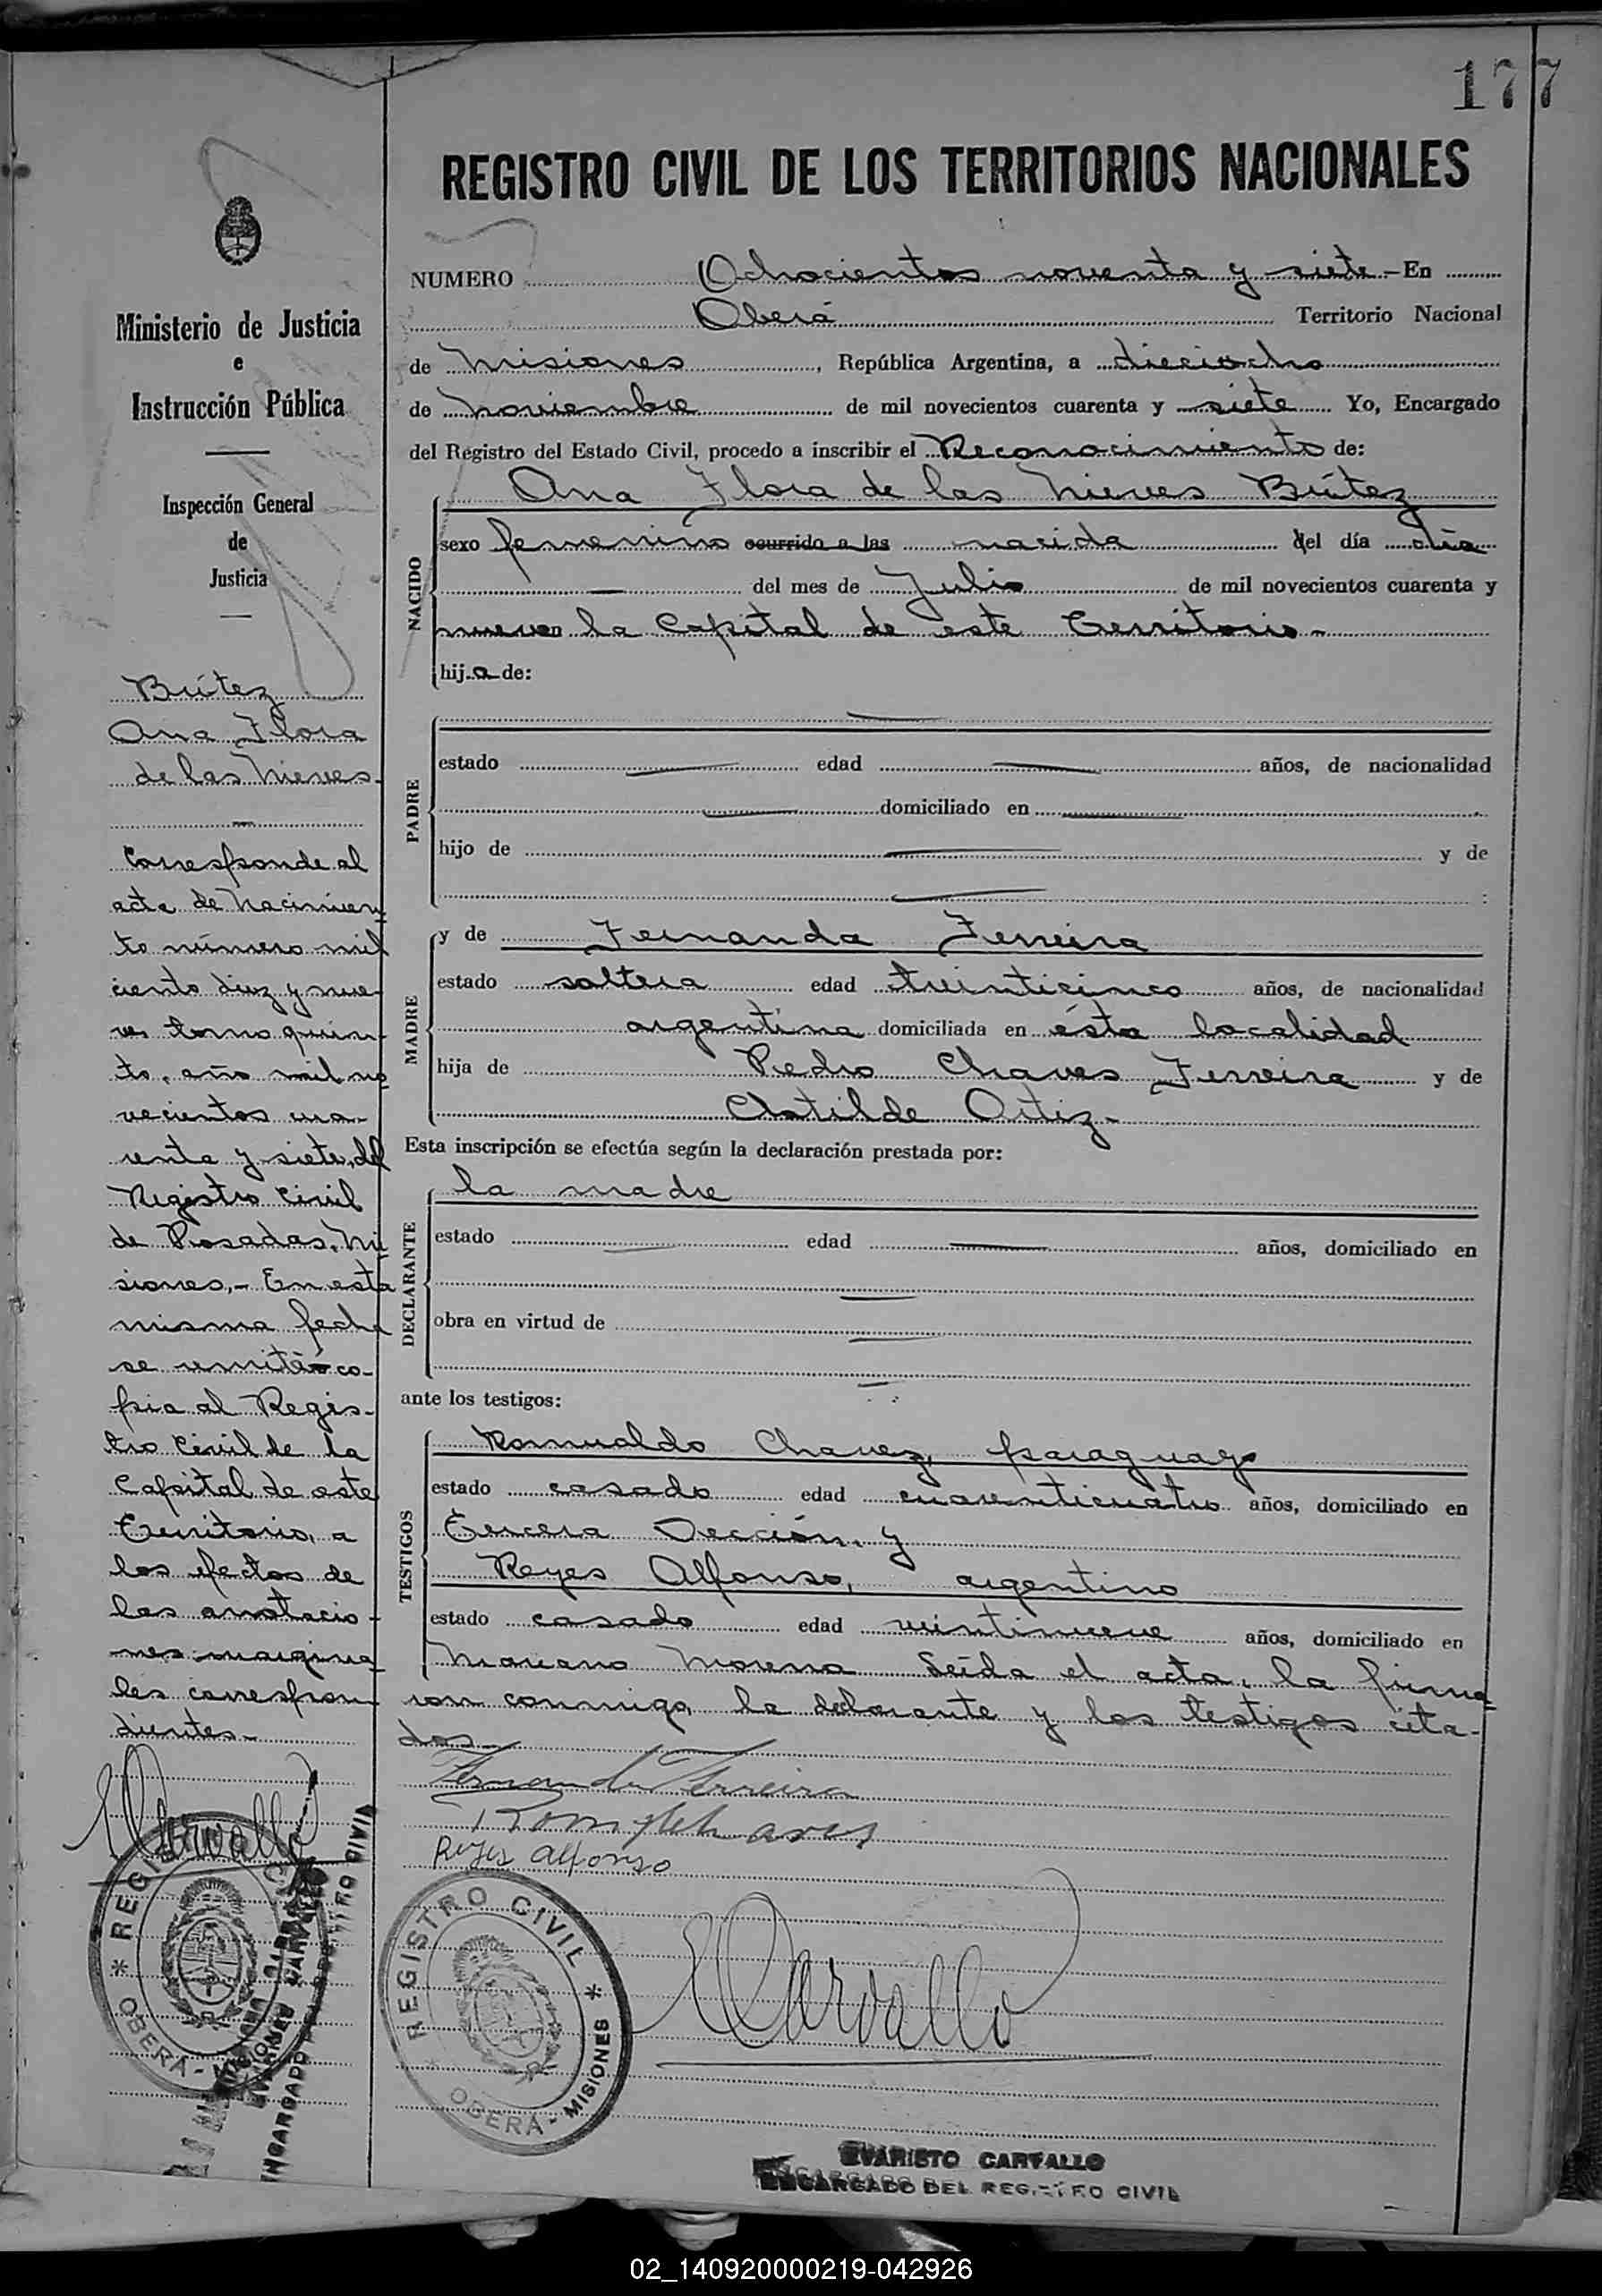 177
REGISTRO CIVIL DE LOS TERRITORIOS NACIONALES
NUMERO Ochocientos noventa y siete.- En
Oberá Territorio Nacional
de Misiones, República Argentina, a dieciocho
de noviembre de mil novecientos cuarenta y siete Yo, Encargado
del Registro del Estado Civil, procedo a inscribir el Reconocimiento de:
NACIDO
Ana Flora de las Nieves Brítez
sexo femenino ocurrido a las nacida del día día
— del mes de Julio de mil novecientos cuarenta y
la Capital de este Territorio.-
hija de:
PADRE
estado — edad — años, de nacionalidad
— domiciliado en —
hijo de — y de
— :
MADRE
y de Fernanda Ferreira
estado soltera edad treinticinco años, de nacionalidad
argentina domiciliada en ésta localidad
hija de Pedro Chaves Ferreira y de
Clotilde Ortiz.-
Esta inscripción se efectúa según la declaración prestada por:
DECLARANTE
la madre
estado — edad — años, domiciliado en
—
obra en virtud de —
—
ante los testigos:
TESTIGOS
Romualdo Chavez, paraguayo
estado casado edad cuarenticuatro años, domiciliado en
Tercera Sección, y
Reyes Alfonso, argentino
estado casado edad veintinueve años, domiciliado en
Mariano Moreno Leída el acta, la firma=
ron conmigo, la declarante y los testigos cita-
dos.-
Fernanda Ferreira
Reyes Alfonso
ECarvallo
REGISTRO CIVIL
OBERÁ - MISIONES
EVARISTO CARVALLO
ENCARGADO DEL REGISTRO CIVIL
Ministerio de Justicia
e
Instrucción Pública
Inspección General
de
Justicia
Brítez
Ana Flora
de las Nieves.
—
Corresponde al
acta de nacimien
to número mil
ciento diez y nue
ve, tomo quin-
to, año mil no
vecientos cua-
renta y siete, del
Registro Civil
de Posadas, Mi
siones.- En esta
misma fecha
se remite co-
pia al Regis-
tro Civil de la
Capital de este
Territorio, a
los efectos de
las anotacio-
nes margina
les correspon
dientes.-
ECarvallo
REGISTRO CIVIL
OBERÁ - MISIONES
02_140920000219-042926